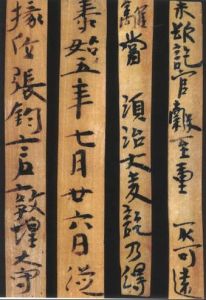 未欲訖官穀至重 不可遠
離當 須治大麦訖乃得
泰始五年七月廿六日從
掾位張鈞言敦煌太守